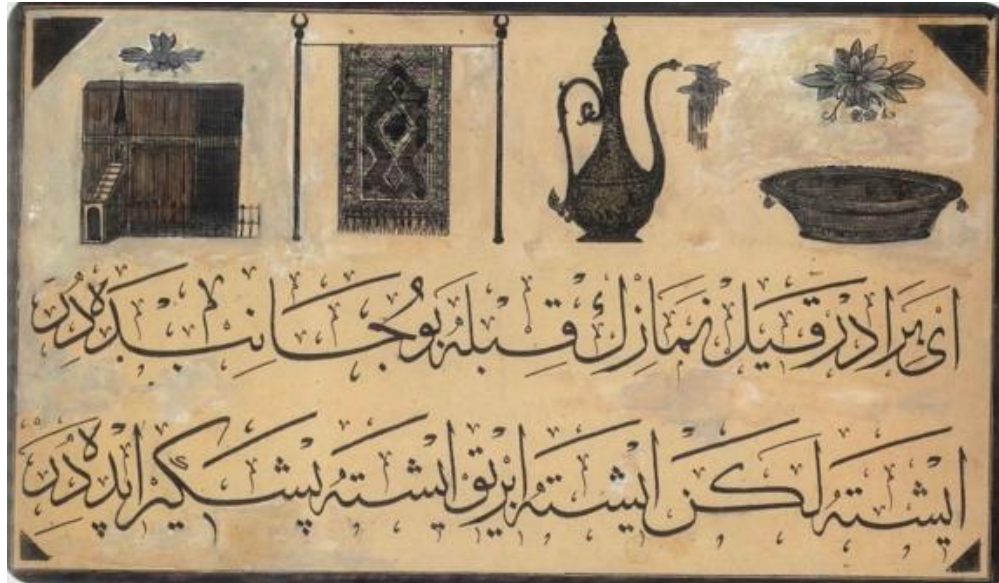 اى برادر قيل نمازك قبله بو جانبده در
ايشته لكن ايشته ابريق ايشته پشكير ايپده در